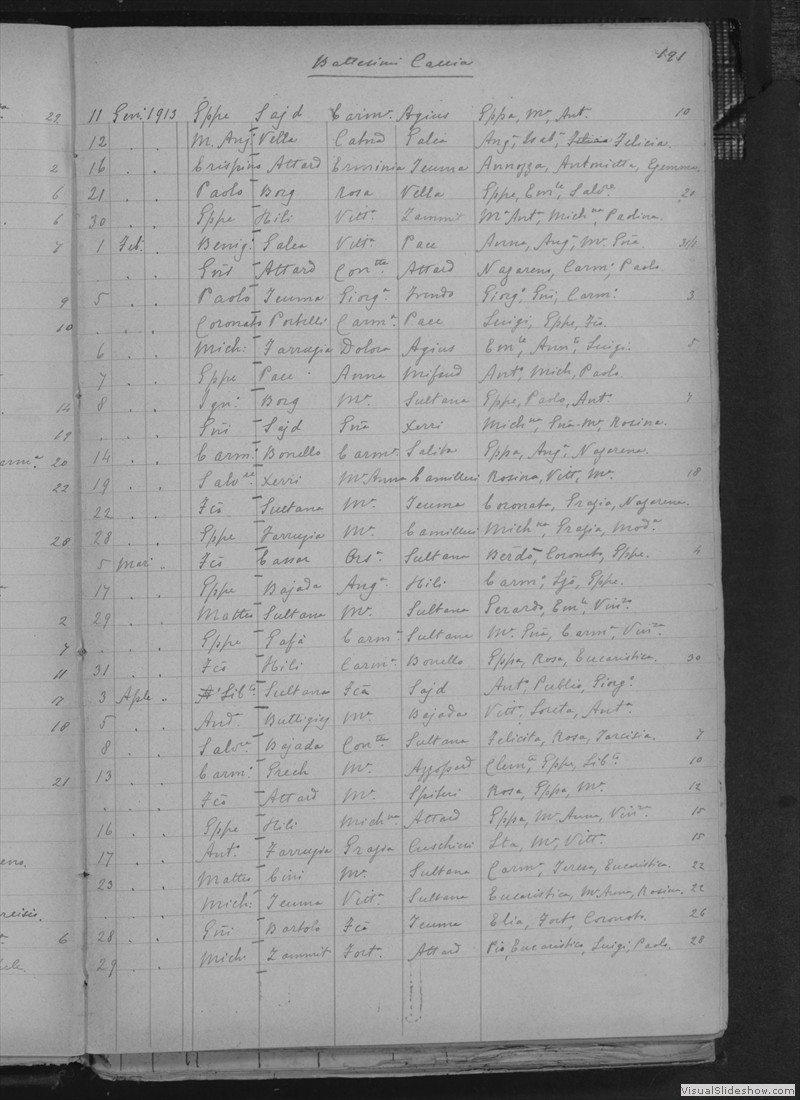 Battesimi Caccia
191
11 Gen. 1913 Gppe Sajd Carmᵃ Agius Gppa, Mᵃ, Antᵃ 10
12 . . M. Angᵒ Vella Catna Galea Angᵃ, Felicia
16 . . Crispino Attard Erminia Teuma Annozza, Antonietta, Gemma
21 . . Paolo Borg Rosa Vella Gppe, Emˡᵉ, Salvʳᵉ 20
30 . . Gppe Hili Vittᵃ Zammit Mᵃ Antᵃ, Michⁿᵃ, Paolina
1 Feb. . Benigᵒ Galea Vittᵃ Pace Anna, Angᵃ, Mᵃ Gña. 31/1
Gñi Attard Conᵗᵗᵃ Attard Nazareno, Carmᵒ, Paolo
5 . . Paolo Teuma Giorgᵃ Grendo Giorgᵒ, Gñi, Carmᵒ 3
. . Coronato Portelli Carmᵃ Pace Luigi, Gppe, Fcõ
6 . . Mich: Farrugia Dolora Agius Emˡᵉ, Annᵗᵒ, Luigi. 5
7 . . Gppe Pace Anna Mifsud Antᵒ, Mich, Paolo
8 . . Ign: Borg Mᵃ Sultana Gppe, Paolo, Antᵒ 7
. . Gñi Sajd Gña Xerri Michⁿᵃ, Gña Mᵃ, Rosina.
14 . . Carmᵒ Bonello Carmᵃ Saliba Gppa, Angᵃ, Nazarena.
19 . . Salvʳᵉ Xerri Mᵃ Anna Camilleri Rosina, Vittᵃ, Mᵃ 18
22 . . Fcõ Sultana Mᵃ Teuma Coronata, Grazia, Nazarena
28 . . Gppe Farrugia Mᵃ Camilleri Michⁿᵃ, Grazia, Modᵃ
5 Mar. . Fcõ Cassar Orsᵃ Sultana Berdᵒ, Coronato, Gppe. 4
17 . . Gppe Bajada Angᵃ Hili Carmᵒ, Gppe.
29 . . Matteo Sultana Mᵃ Sultana Gerardo, Emˡᵉ, Vinᶻᵒ
. . Gppe Gafà Carmᵃ Sultana Mᵃ Gña, Carmᵃ, Vinᶻᵃ
31 . . Fcõ Hili Carmᵃ Bonello Gppa, Rosa, Eucaristica. 30
3 Aple . Libᵒ Sultana Fcã Sajd Antᵒ, Publio, Giorgᵒ
5 . . And. Buttigieg Mᵃ Bajada Vittᵃ, Loreta, Antᵃ
8 . . Salvʳᵉ Bajada Conᵗᵗᵃ Sultana Felicita, Rosa, Tarcisia. 7
13 . . Carmᵒ Grech Mᵃ Azzopard Clemᵗᵉ, Gppe, Libᵒ 10
. . Fcõ Attard Mᵃ Spiteri Rosa, Gppa, Mᵃ 12
16 . . Gppe Hili Michⁿᵃ Attard Gppa, Mᵃ Anna, Vinᶻᵃ 15
17 . . Antᵒ Farrugia Grazia Cuschieri Mᵃ, Vittᵃ 15
23 . . Matteo Cini Mᵃ Sultana Carmᵃ, Teresa, Eucaristica. 22
. . Mich: Teuma Vittᵃ Sultana Eucaristica, Mᵃ Anna, Rosina. 22
28 . . Gñi Bartolo Fcã Teuma Elia, Fortᵒ, Coronato. 26
29 . . Mich Zammit Fortᵃ Attard Pio, Eucaristico, Luigi, Paolo, 28
VisualSlideshow.com